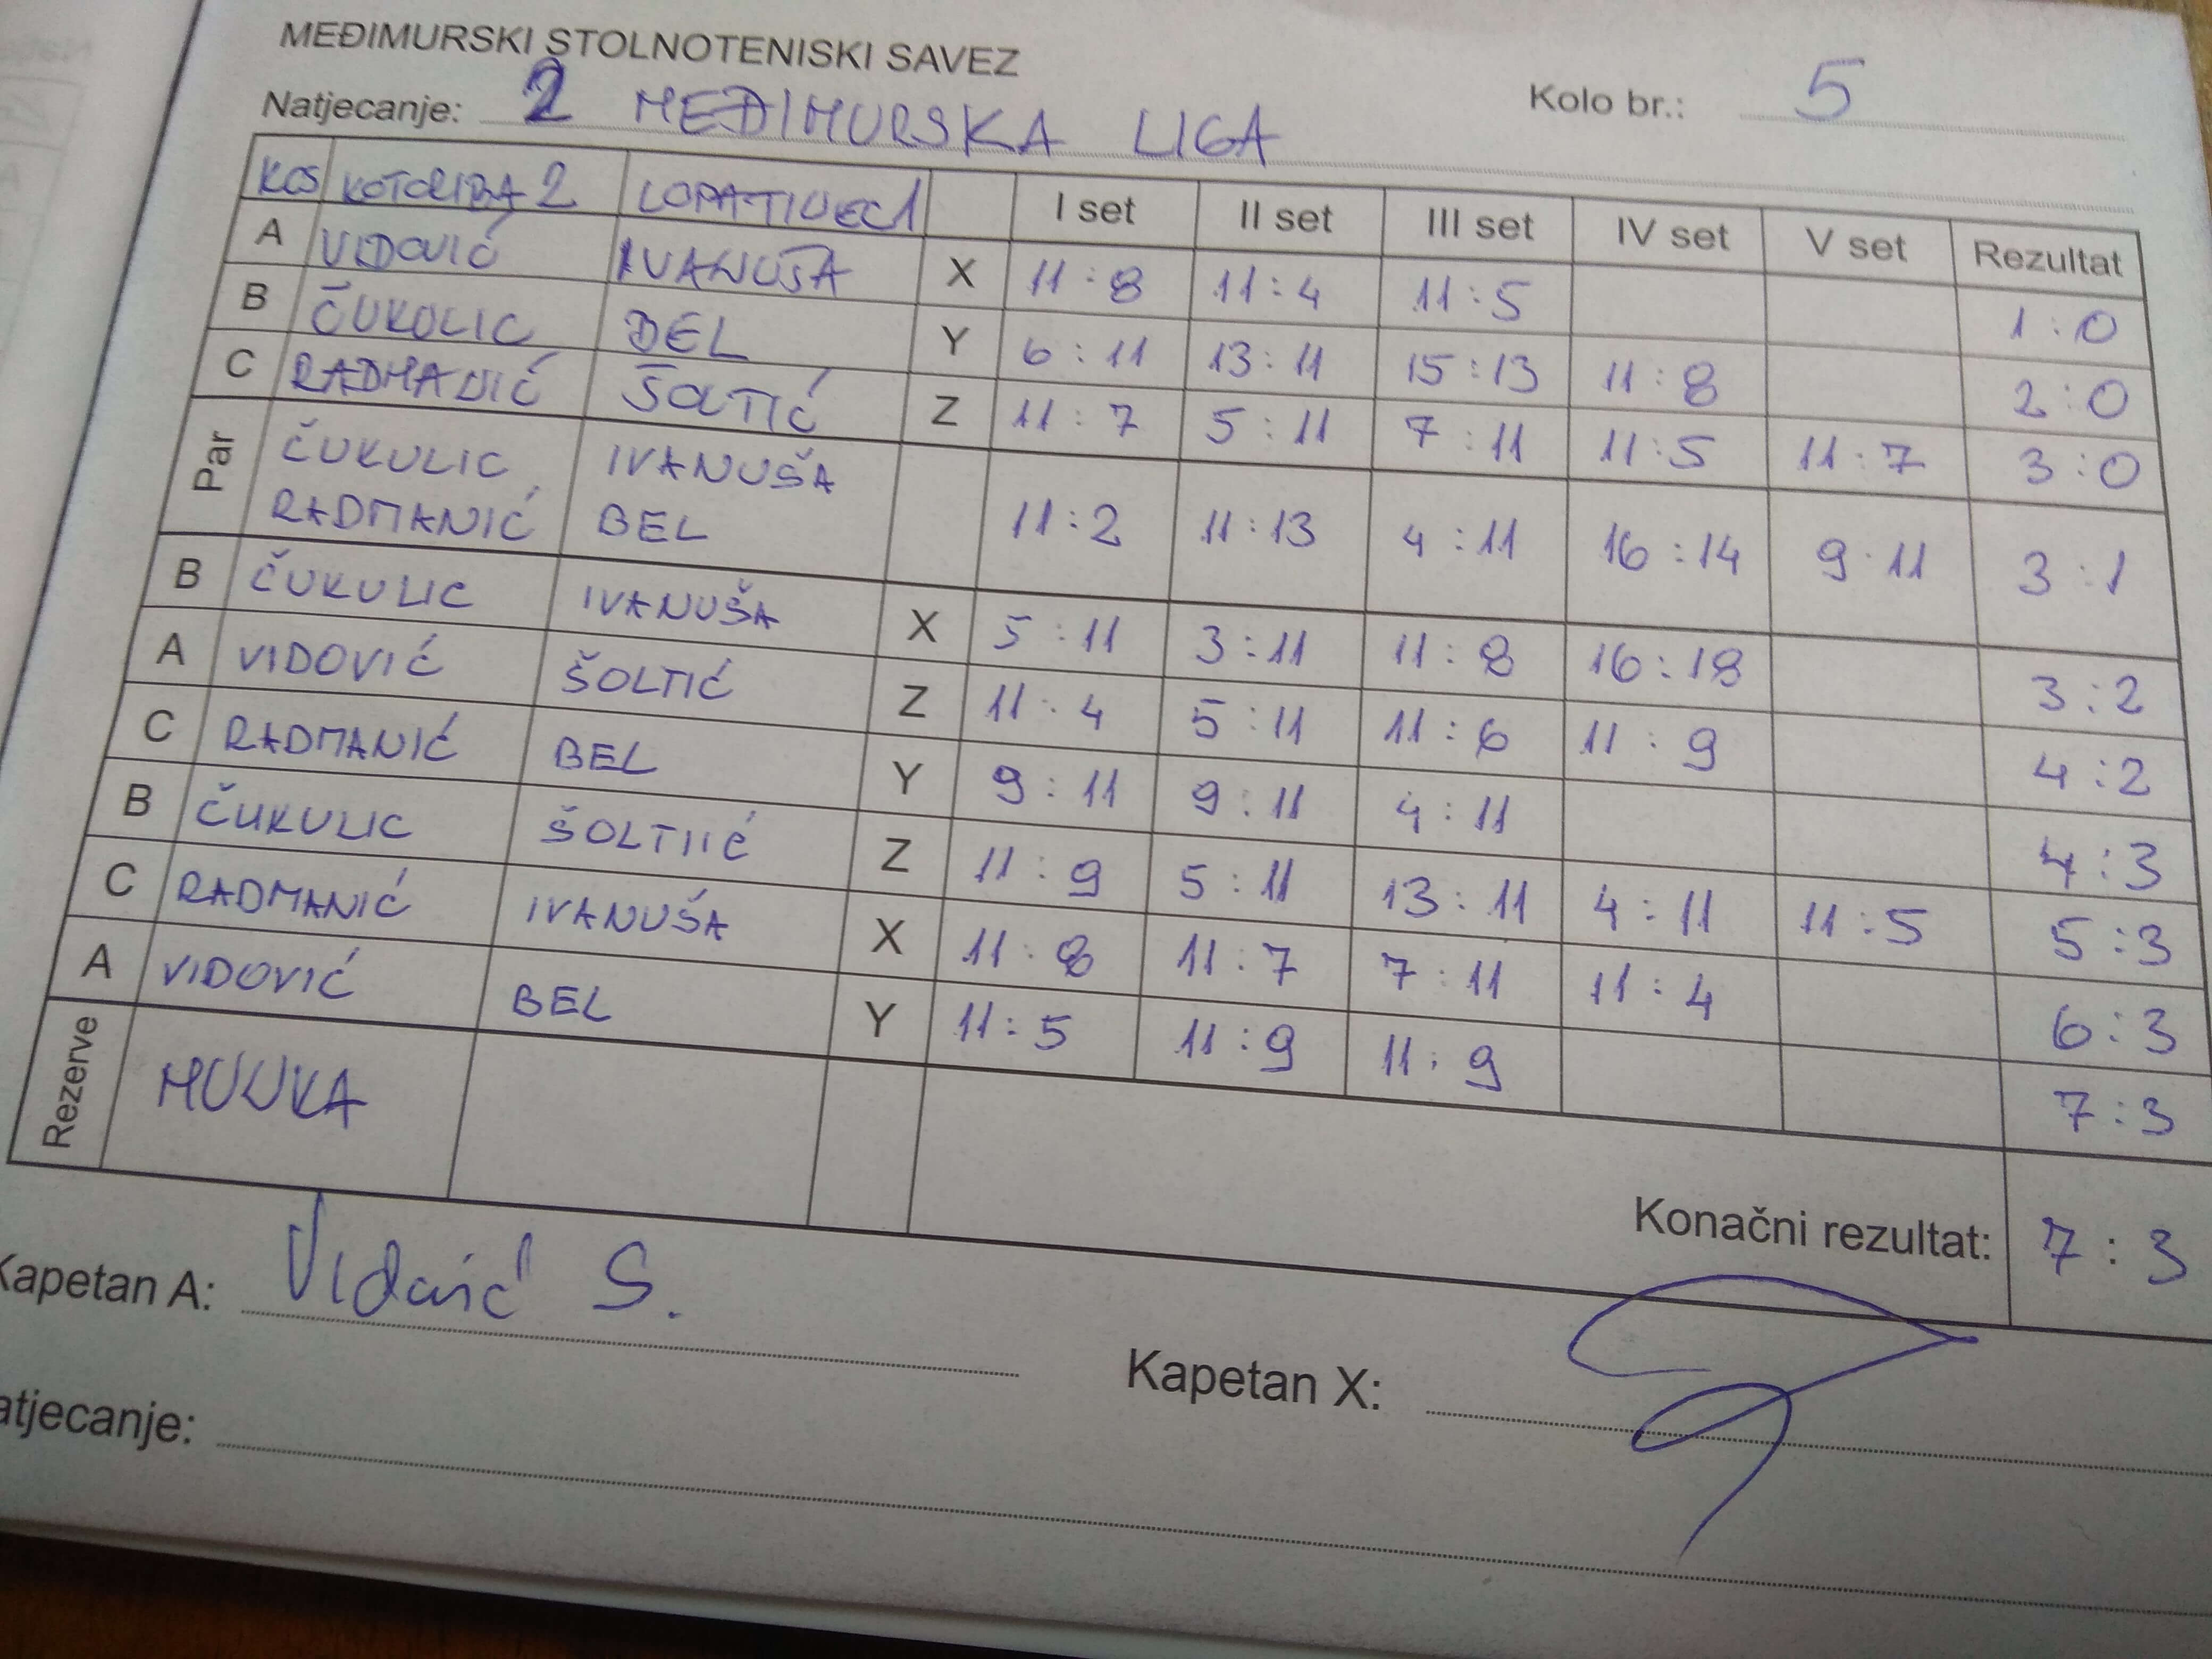 MEĐIMURSKI STOLNOTENISKI SAVEZ
Natjecanje: 2 MEĐIMURSKA LIGA Kolo br.: 5
KOTORIBA 2 LOPATINEC 1 I set II set III set IV set V set Rezultat
A VIDOVIĆ IVANUŠA X 11:8 11:4 11:5 1:0
B ČUKULIC BEL Y 6:11 13:11 15:13 11:8 2:0
C RADMANIĆ ŠOLTIĆ Z 11:7 5:11 7:11 11:5 11:7 3:0
Par ČUKULIC IVANUŠA
RADMANIĆ BEL 11:2 11:13 4:11 16:14 9:11 3:1
B ČUKULIC IVANUŠA X 5:11 3:11 11:8 16:18 3:2
A VIDOVIĆ ŠOLTIĆ Z 11:4 5:11 11:6 11:9 4:2
C RADMANIĆ BEL Y 9:11 9:11 4:11 4:3
B ČUKULIC ŠOLTIIĆ Z 11:9 5:11 13:11 4:11 11:5 5:3
C RADMANIĆ IVANUŠA X 11:8 11:7 7:11 11:4 6:3
A VIDOVIĆ BEL Y 11:5 11:9 11:9 7:3
Rezerve
Konačni rezultat: 7:3
Kapetan A: Vidović S. Kapetan X:
atjecanje: